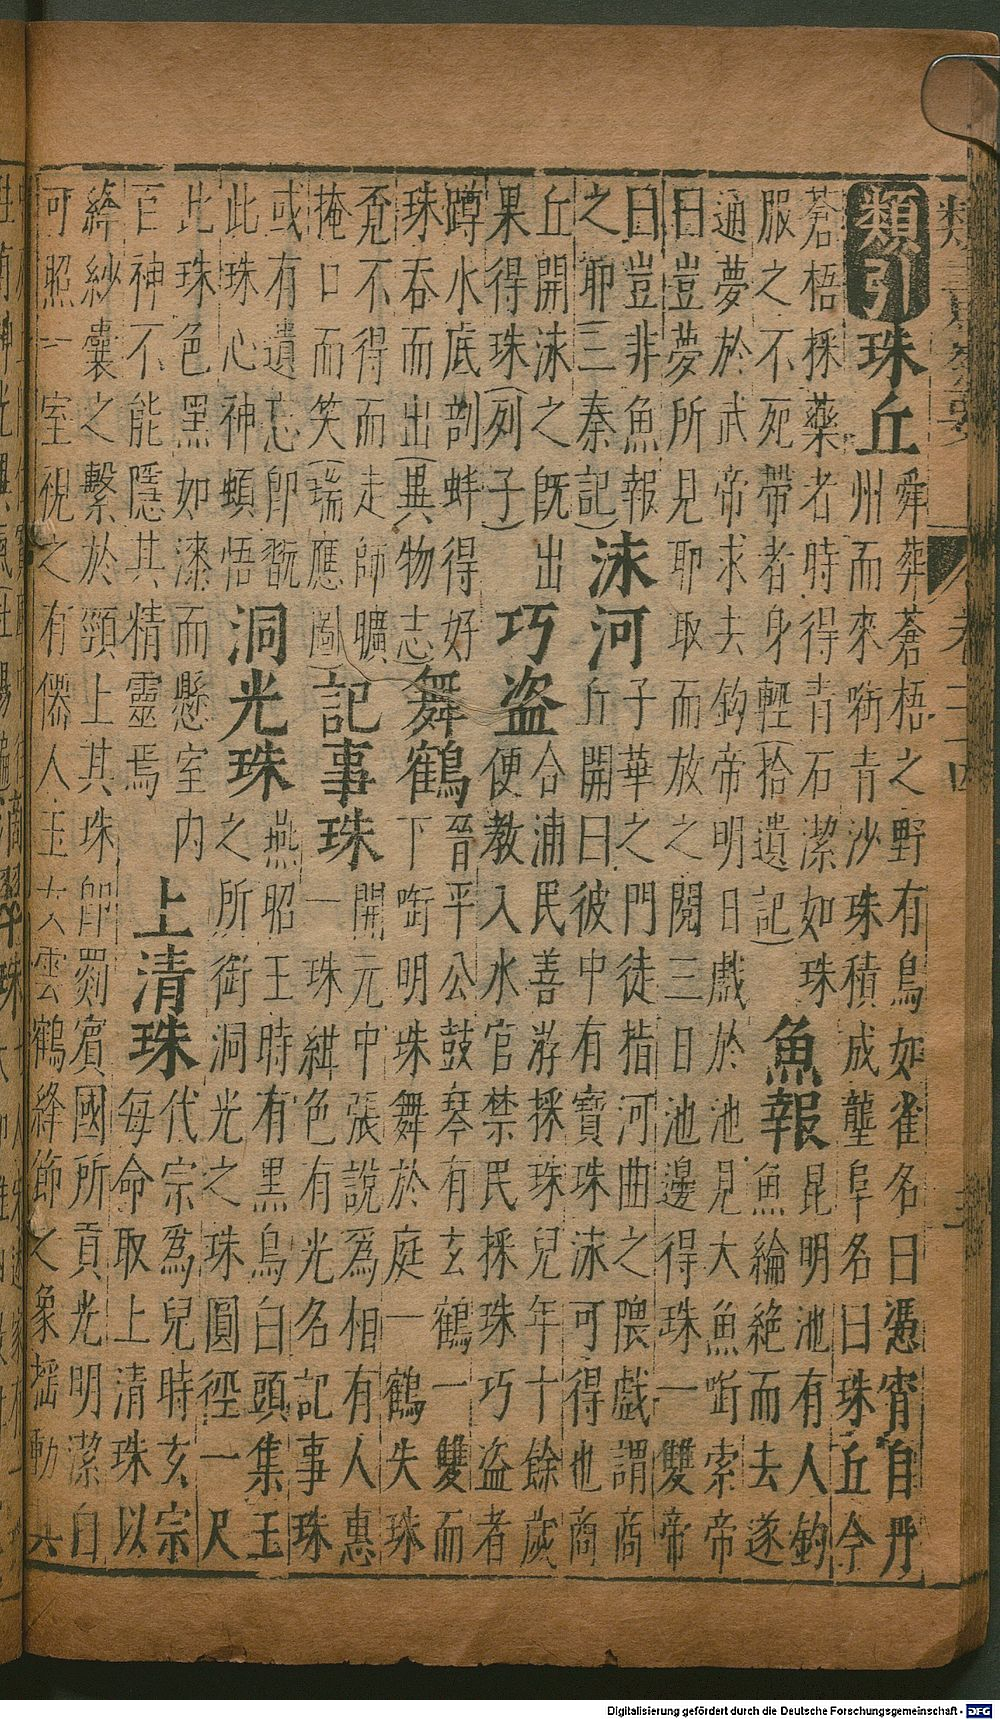 類書纂要
卷二十四
類引
珠丘
舜葬蒼梧之野有鳥如雀名曰憑宵自丹
州而來啣青沙珠積成壟阜名曰珠丘今
蒼梧採藥者時得青石潔如珠
服之不死帶者身輕(拾遺記)
魚報
昆明池有人釣
魚綸絕而去遂
通夢於武帝求去鈎帝明日戲於池見大魚啣索帝
曰豈夢所見耶取而放之閱三日池邊得珠一雙帝
曰豈非魚報
之耶(三秦記)
泳河
子華之門徒指河曲之隈戲謂商
丘開曰彼中有寶珠泳可得也商
丘開泳之旣出
果得珠(列子)
巧盗
合浦民善游採珠兒年十餘歲
便教入水官禁民採珠巧盗者
蹲水底剖蚌得好
珠吞而出(異物志)
舞鶴
晉平公鼓琴有玄鶴一雙而
下啣明珠舞於庭一鶴失珠
覓不得而走師曠
掩口而笑(瑞應圖)
記事珠
開元中張說爲相有人惠
一珠紺色有光名記事珠
或有遺忘卽翫
此珠心神頓悟
洞光珠
燕昭王時有黑鳥白頭集王
之所銜洞光之珠圓徑一尺
此珠色黑如漆而懸室内
百神不能隱其精靈焉
上清珠
代宗爲兒時玄宗
每命取上清珠以
絳紗囊之繫於頸上其珠卽罽賓國所貢光明潔白
可照一室視之有僊人玉女雲鶴絳節之象搖動其
Digitalisierung gefördert durch die Deutsche Forschungsgemeinschaft - DFG